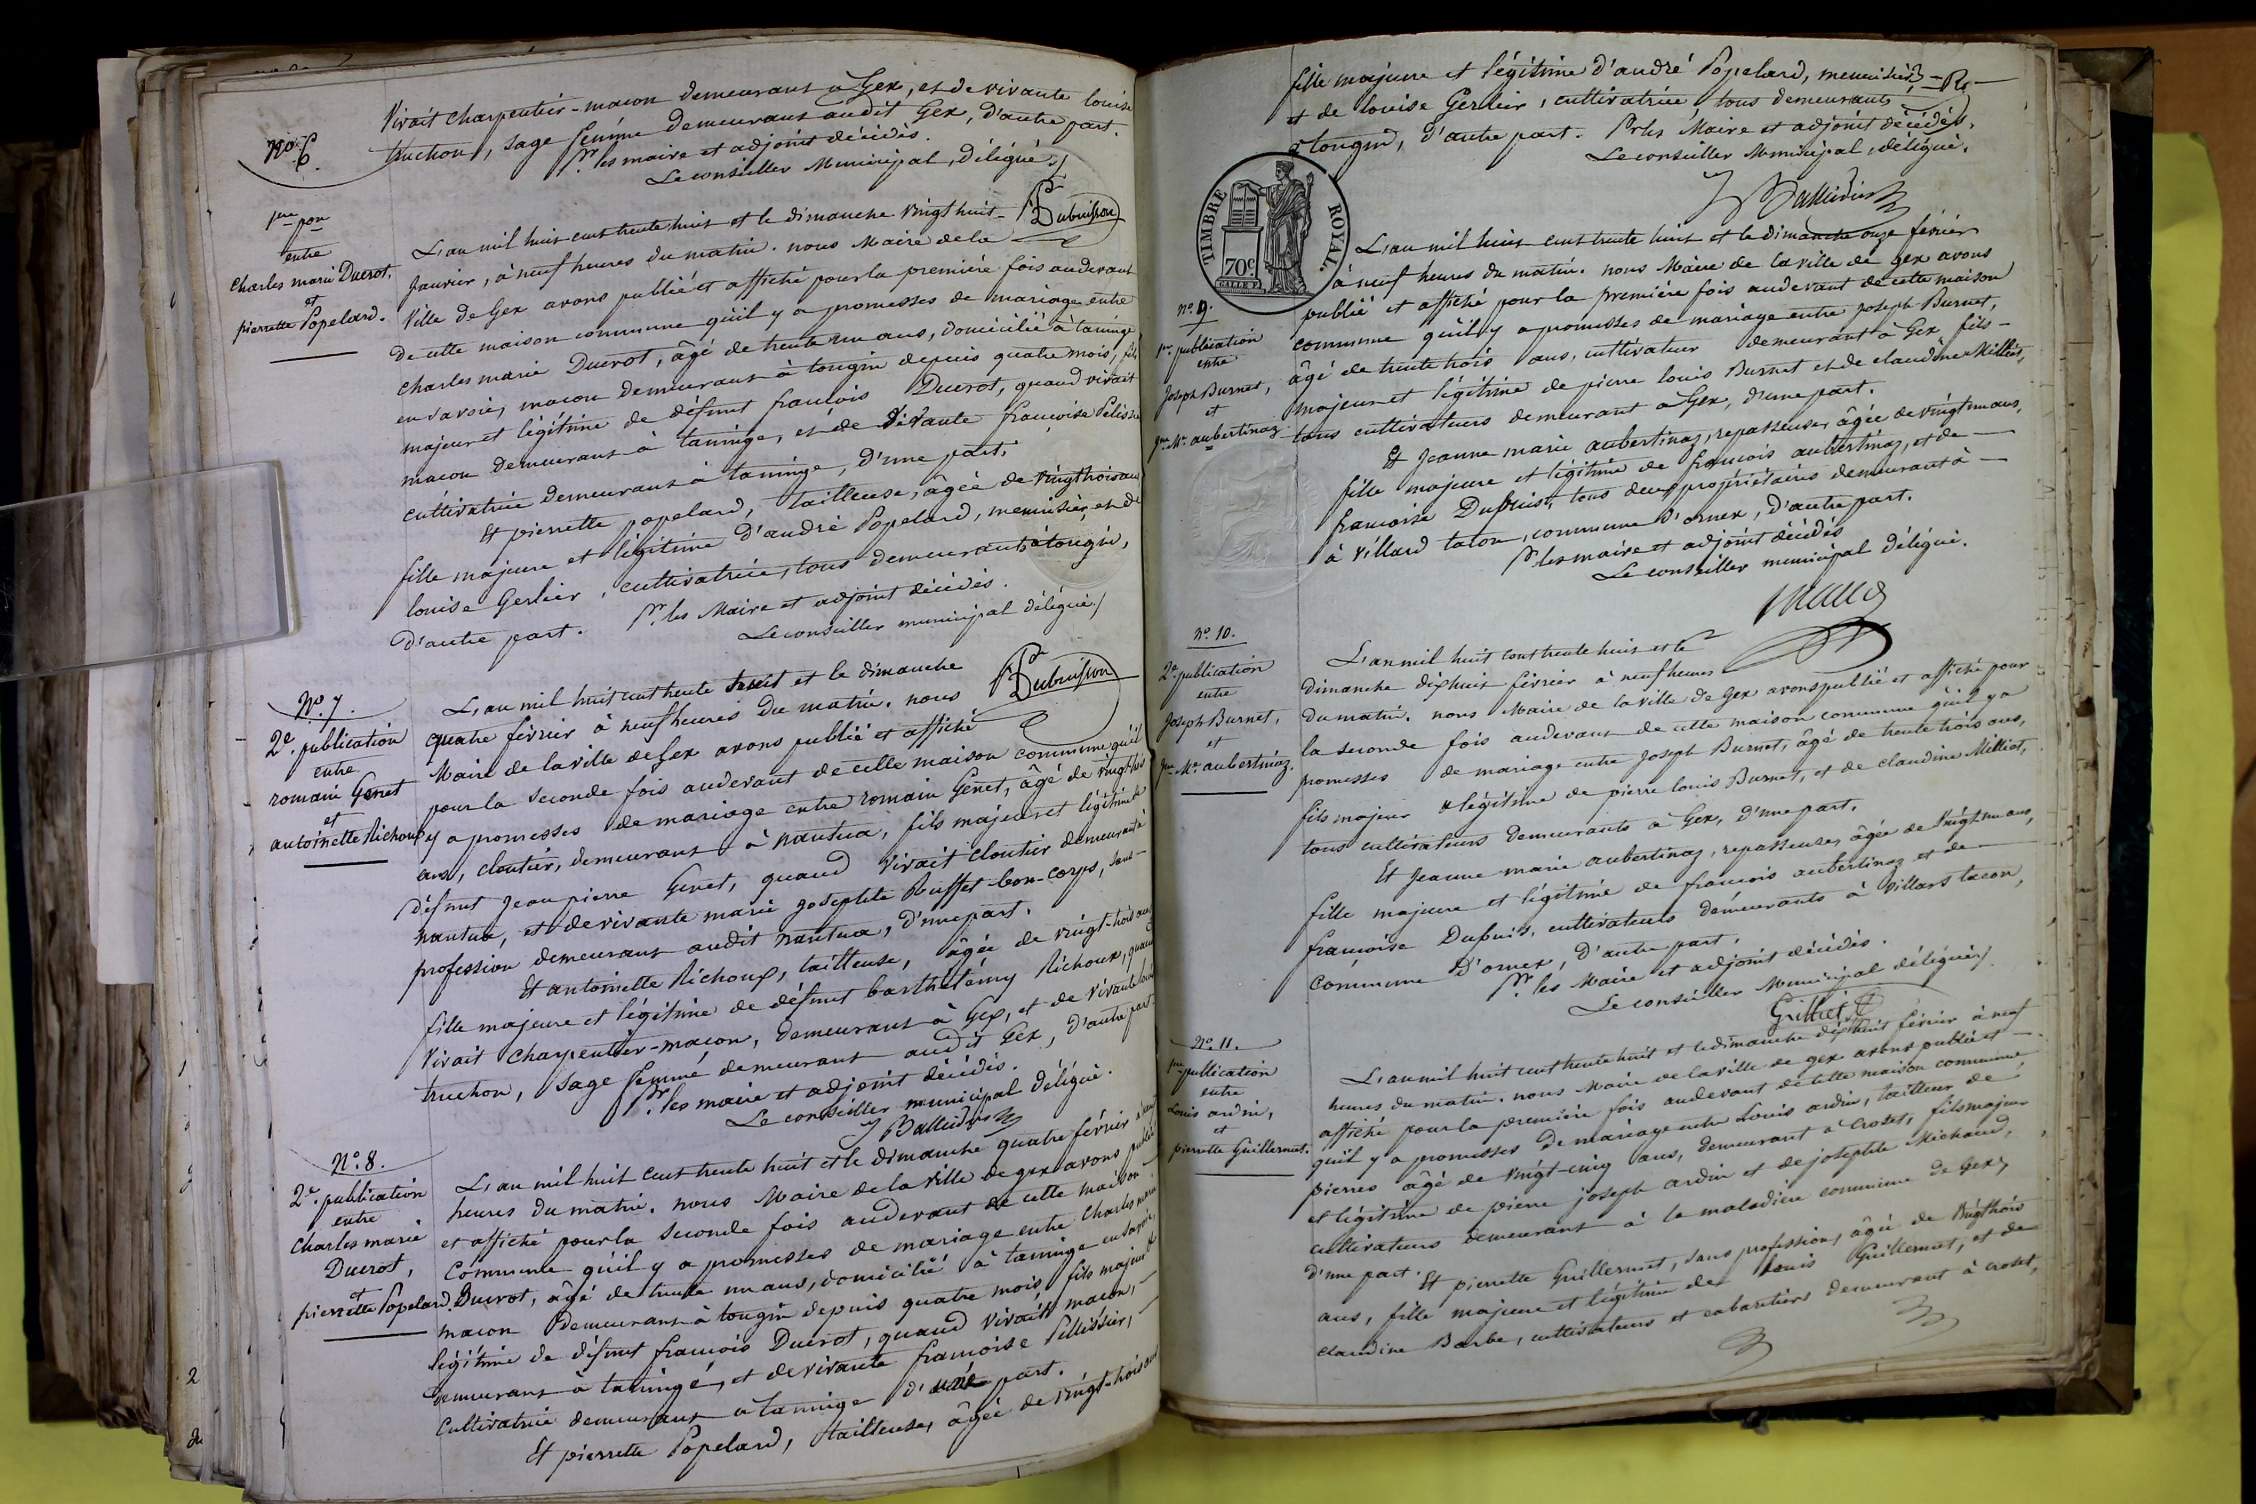 Vivait charpentier-macon demeurant a Gex, et de vivante louise
truchon, sage femme demeurant audit Gex, d'autre part.
Pr. les maire et adjoint décédés.
Le conseiller Municipal, délégué
Dubuisson
No. 6.
1re pon
entre
Charles marie Ducrot,
et
pierrette Popelard.
L'an mil huit cent trente huit et le dimanche vingt huit
Janvier, à neuf heures du matin. nous Maire de la
Ville de Gex avons publié et affiché pour la première fois audevant
de cette maison commune qu'il y a promesses de mariage entre
Charles marie Ducrot, âgé de trente un ans, domicilié à taninge
en savoie, macon demeurant à tougin depuis quatre mois, fils
majeur et légitime de défunt francois Ducrot, quand vivait
macon demeurant à taninge, et de vivante francoise
cultivatrice demeurant à taninge, d'une part.
Et pierrette popelard, tailleuse, âgée de vingt trois ans
fille majeure et légitime d'andré Popelard, menuisier, et de
louise Gerlier, cultivatrice, tous demeurants à tougin,
d'autre part. Pr. les Maire et adjoint décédés.
Le conseiller municipal délégué
Dubuisson
No. 7.
2e. publication
entre
romain Genet
et
antoinette Richoux
L'an mil huit cent trente huit et le dimanche
quatre février à neuf heures du matin. nous
Maire de la ville de Gex avons publié et affiché
pour la seconde fois audevant de cette maison commune qu'il
y a promesses de mariage entre romain Genet, âgé de vingt
ans, cloutier, demeurant à nantua, fils majeur et légitime de
défunt Jean pierre Genet, quand vivait cloutier demeurant à
nantua, et de vivante marie Josephte Ruffet-bon-corps, sans-
profession demeurant audit nantua, d'une part.
Et antoinette Richoux, tailleuse, âgée de vingt-trois ans
fille majeure et légitime de défunt barthélémy Richoux, quand
Vivait charpentier-macon, demeurant à Gex, et de vivante louise
truchon, sage femme demeurant audit Gex, d'autre part.
Pr. les maire et adjoint décédés.
Le conseiller municipal délégué.
No. 8.
2e. publication
entre
Charles marie
Ducrot,
et
pierrette Popelard.
L'an mil huit cent trente huit et le dimanche quatre février à neuf
heures du matin. nous Maire de la ville de gex avons publié
et affiché pour la seconde fois audevant de cette maison
Commune qu'il y a promesses de mariage entre Charles marie
Ducrot, âgé de trente un ans, domicilié à taninge en savoie,
macon demeurant à tougin depuis quatre mois, fils majeur et
légitime de défunt francois Ducrot, quand vivait macon,
demeurant à taninge, et de vivante francoise Pellissier,
Cultivatrice demeurant a taninge d'une part.
Et pierrette Popelard, tailleuse, âgée de vingt-trois ans
fille majeure et légitime d'andré Popelard, menuisier,
et de louise Gerlier, cultivatrice, tous demeurants
a tougin, d'autre part. Pr les Maire et adjoint décédés.
Le conseiller Municipal, délégué.
TIMBRE
ROYAL.
70c
no. 9.
1re. publication
entre
Joseph Burnet,
et
Jne. Me. aubertinaz
L'an mil huit cent trente huit et le dimanche onze février
à neuf heures du matin. nous Maire de la ville de gex avons
publié et affiché pour la première fois audevant de cette maison
commune qu'il y a promesses de mariage entre joseph Burnet,
âgé de trente trois ans, cultivateur demeurant à Gex fils-
majeur et légitime de pierre louis Burnet et de claudine Milliet,
tous cultivateurs demeurant a Gex, d'une part.
Et Jeanne marie aubertinaz, repasseuse, âgée de vingt un ans,
fille majeure et légitime de francois aubertinaz, et de
francoise Dupuis, tous deux propriétaires demeurant à
à Villard tacon, commune d'ornex, d'autre part.
Pr. les maire et adjoint décédés
Le conseiller municipal délégué.
no. 10.
2e. publication
entre
Joseph Burnet,
et
Jne. Me. aubertinaz.
L'an mil huit cent trente huit et le
dimanche dix huit février à neuf heures
du matin. nous Maire de la ville de Gex avons publié et affiché pour
la seconde fois audevant de cette maison commune qu'il y a
promesses de mariage entre Joseph Burnet, âgé de trente trois ans,
fils majeur et légitime de pierre louis Burnet, et de claudine Milliet,
tous cultivateurs demeurants a Gex, d'une part.
Et Jeanne marie aubertinaz, repasseuse, âgée de vingt un ans,
fille majeure et légitime de francois aubertinaz et de
francoise Dupuis, cultivateurs demeurants à Villars tacon,
commune d'ornex, d'autre part.
Pr. les Maire et adjoint décédés.
Le conseiller Municipal délégué
No. 11.
1re publication
entre
Louis ardin,
et
pierrette Guillermet.
L'an mil huit cent trente huit et le dimanche dix huit février à neuf
heures du matin. nous Maire de la ville de gex avons publié et
affiché pour la première fois audevant de cette maison commune
qu'il y a promesses de mariage entre Louis ardin, tailleur de
pierres âgé de vingt-cinq ans, demeurant à Crozet, fils majeur
et légitime de pierre joseph ardin et de josephte Michaud,
cultivateurs demeurant à la maladière commune de Gex,
d'une part. Et pierrette Guillermet, sans profession, âgée de vingt trois
ans, fille majeure et légitime de louis Guillermet, et de
claudine Barbe, cultivateurs et cabaretiers demeurant à crozet,